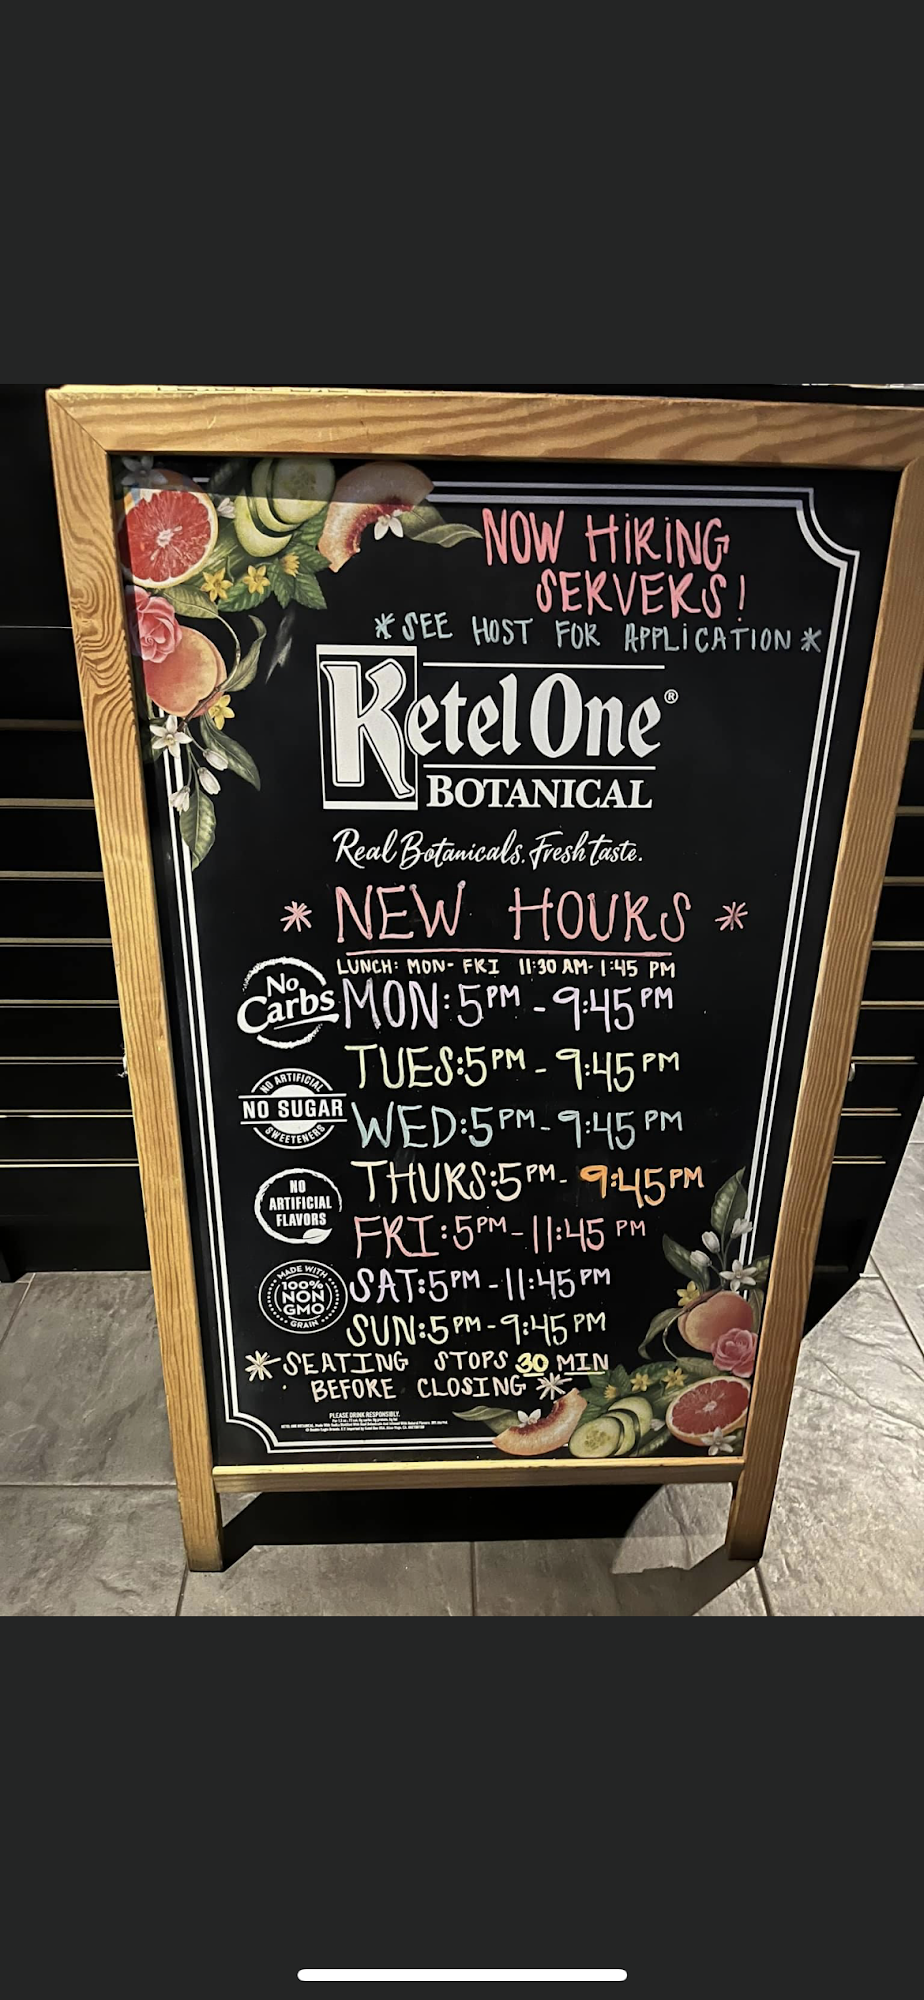 NOW HiRiNG
SERVERS!
*SEE HOST FOR APPLiCATION*
Ketel One®
BOTANICAL
Real Botanicals. Fresh taste.
* NEW HOURS *
LUNCH: MON- FRI 11:30 AM- 1:45 PM
No
Carbs
MON: 5PM - 9:45PM
TUES: 5PM - 9:45PM
NO ARTIFICIAL
NO SUGAR
SWEETENERS
WED: 5PM - 9:45PM
THURS: 5PM - 9:45PM
NO
ARTIFICIAL
FLAVORS
FRI: 5PM - 11:45 PM
MADE WITH
100%
NON
GMO
GRAIN
SAT: 5PM - 11:45PM
SUN: 5PM - 9:45PM
*SEATING STOPS 30 MIN
BEFORE CLOSING*
PLEASE DRINK RESPONSIBLY.